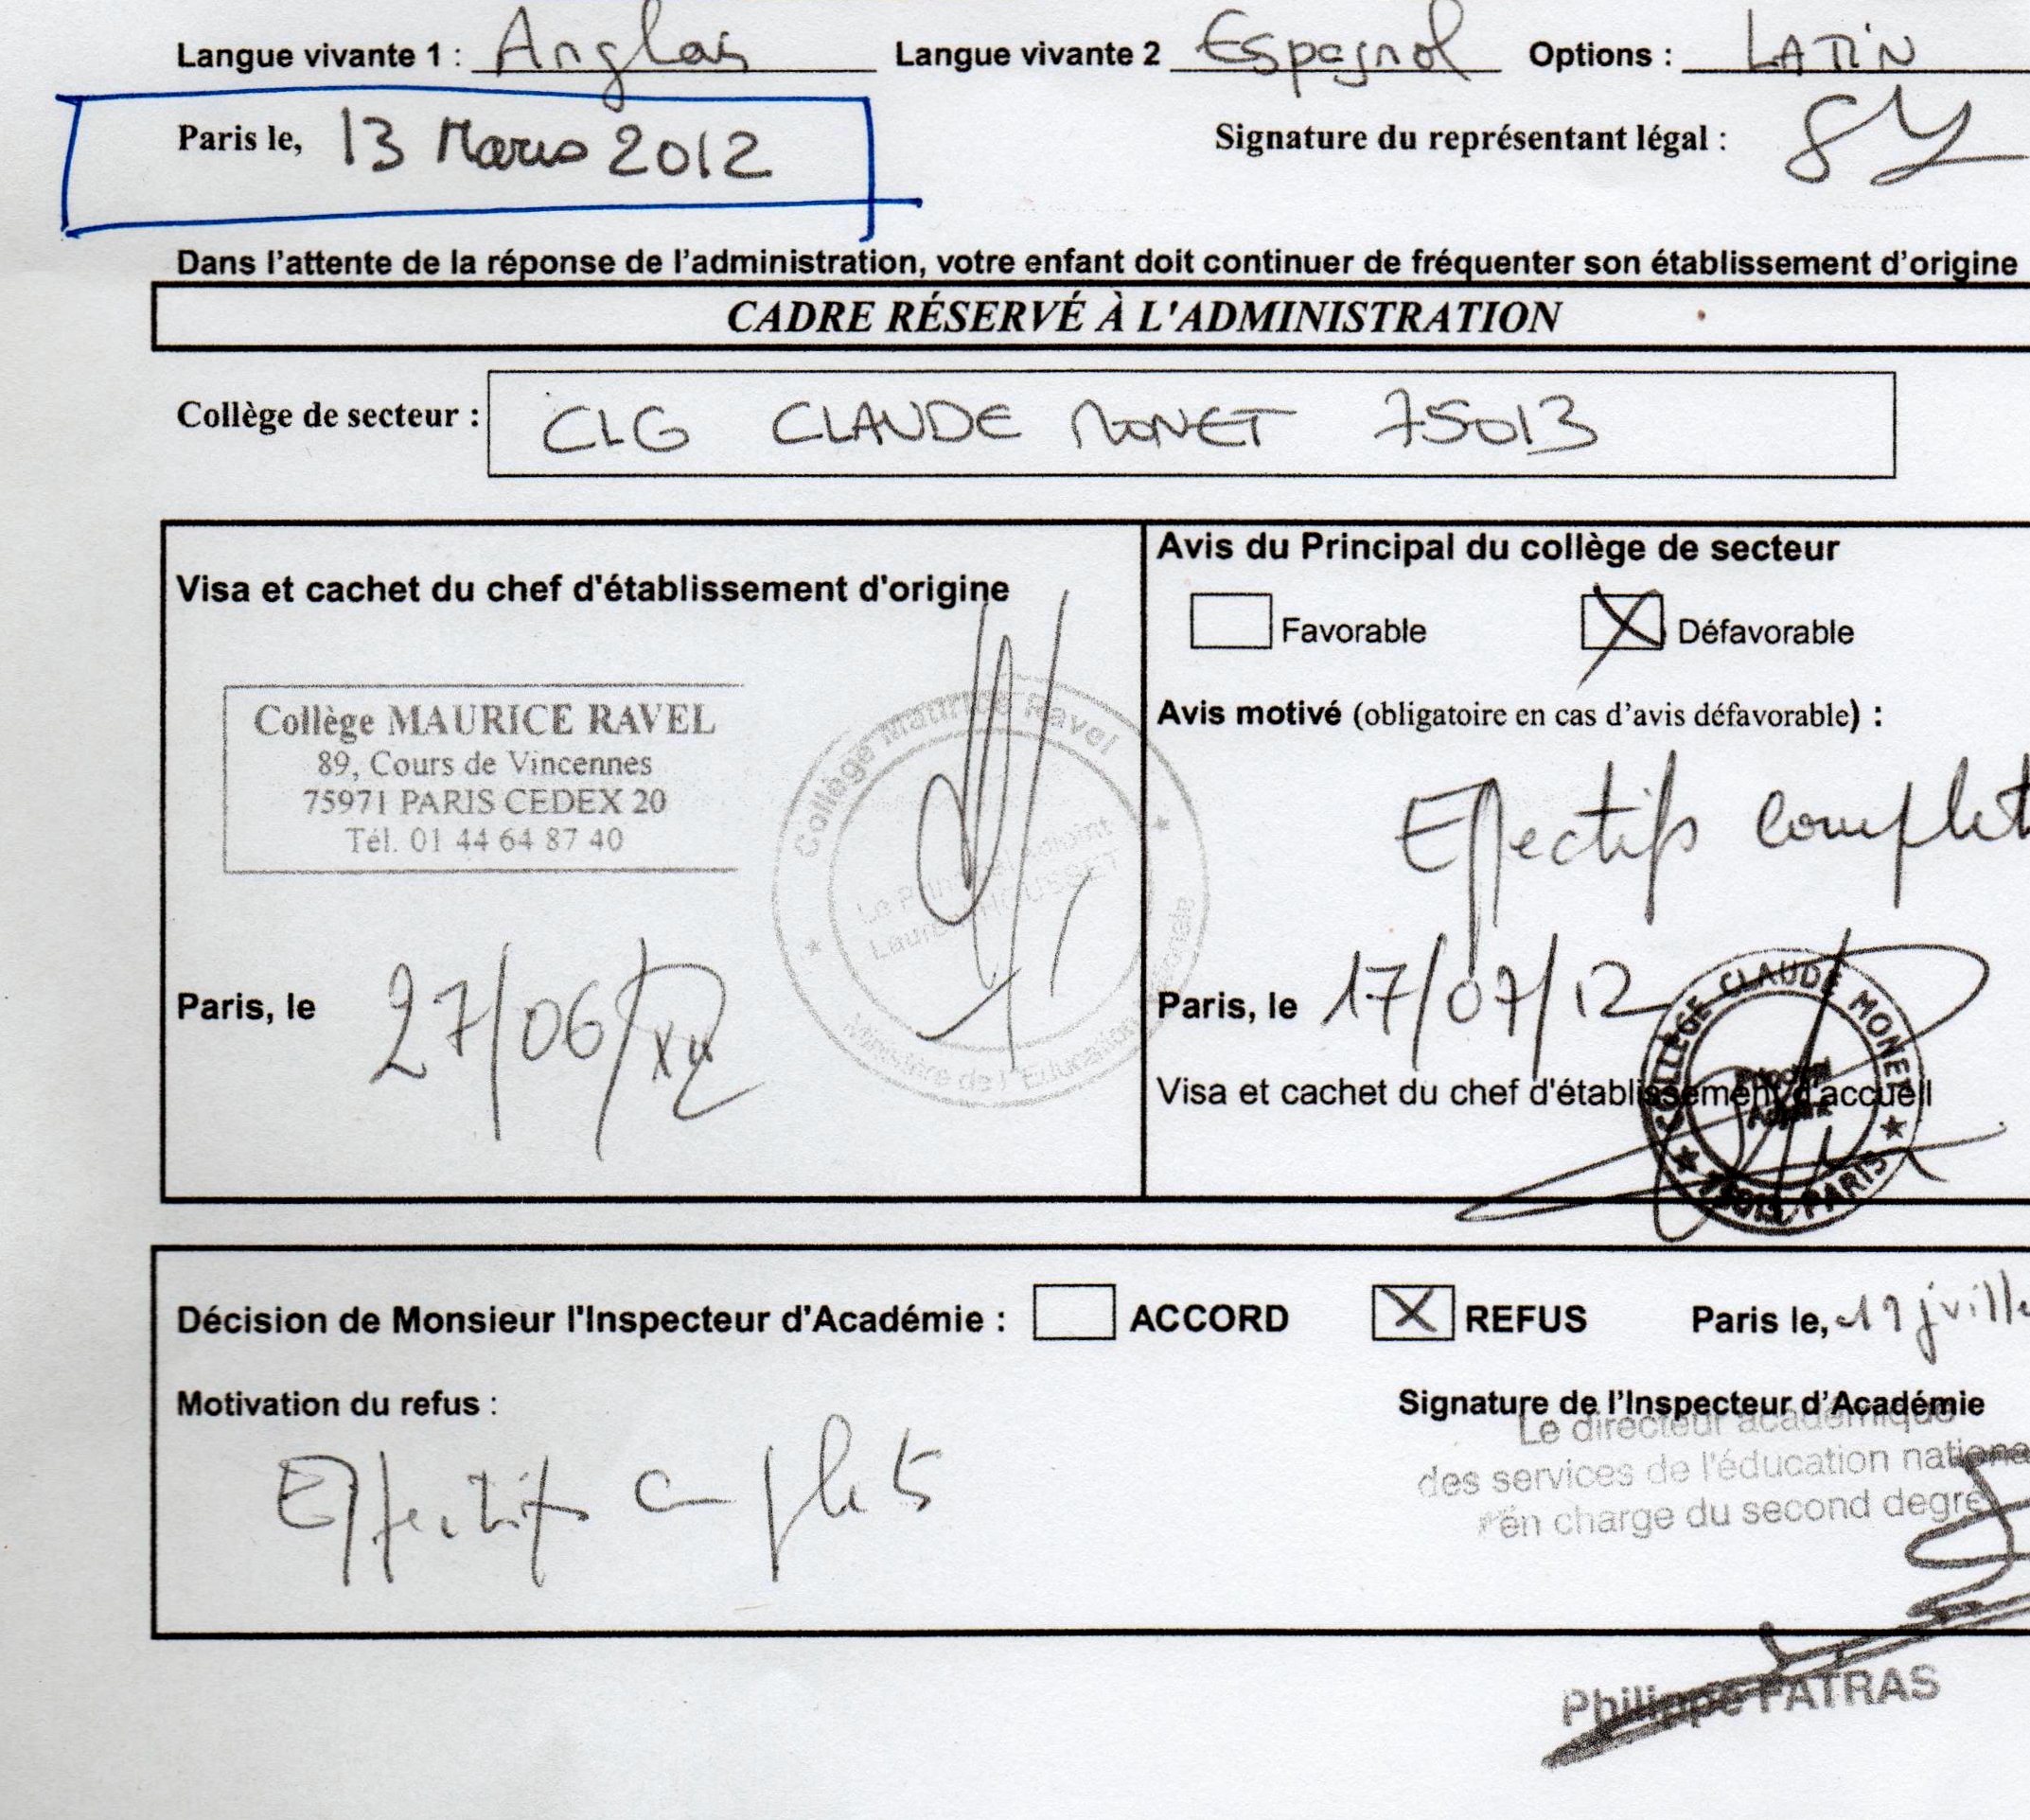 Langue vivante 1 : Anglais Langue vivante 2 Espagnol Options : LATIN
Paris le, 13 Mars 2012 Signature du représentant légal :
Dans l'attente de la réponse de l'administration, votre enfant doit continuer de fréquenter son établissement d'origine
CADRE RÉSERVÉ À L'ADMINISTRATION
Collège de secteur : CLG CLAUDE MONET 75013
Visa et cachet du chef d'établissement d'origine
Collège MAURICE RAVEL
89, Cours de Vincennes
75971 PARIS CEDEX 20
Tél. 01 44 64 87 40
Collège Maurice Ravel
Le Principal Adjoint
HOUSSET
Ministère de l'Education
Paris, le 27/06/
Avis du Principal du collège de secteur
Favorable Défavorable
Avis motivé (obligatoire en cas d'avis défavorable) :
Effectifs complet
Paris, le 17/07/12
Visa et cachet du chef d'établissement d'accueil
COLLÈGE CLAUDE MONET
Principal
Adjoint
75013 PARIS
Décision de Monsieur l'Inspecteur d'Académie : ACCORD REFUS Paris le, 19 juille
Motivation du refus : Signature de l'Inspecteur d'Académie
Effectifs complets
Le directeur académique
des services de l'éducation nationa
en charge du second degré
Philippe FATRAS